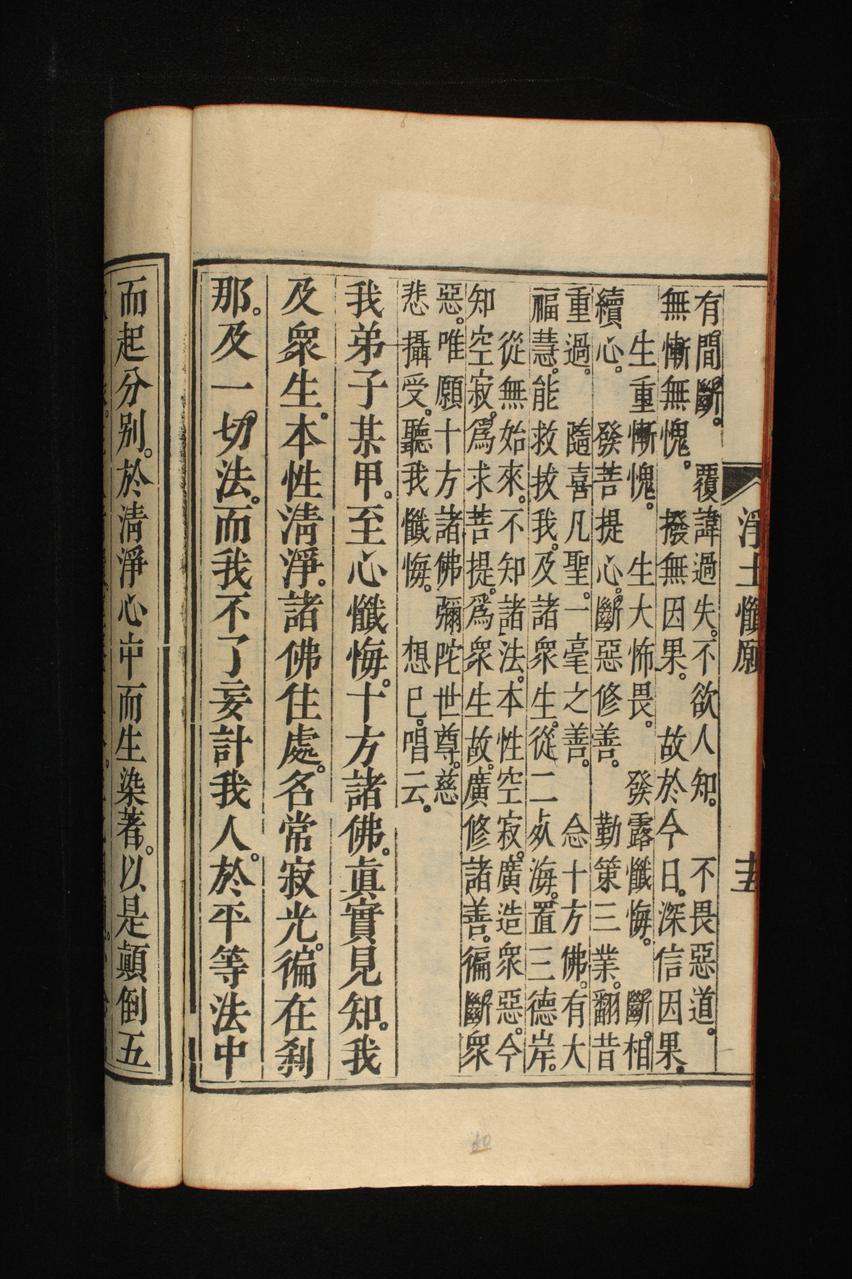 淨土懺願
十五
有間斷。 覆諱過失。不欲人知。 不畏惡道。
無慚無愧。 撥無因果。 故於今日。深信因果。
生重慚愧。 生大怖畏。 發露懺悔。 斷相
續心。 發菩提心。斷惡修善。 勤策三業。翻昔
重過。 隨喜凡聖。一毫之善。 念十方佛。有大
福慧。能救拔我。及諸衆生。從二死海。置三德岸。
從無始來。不知諸法。本性空寂。廣造衆惡。今
知空寂。爲求菩提。爲衆生故。廣修諸善。徧斷衆
惡。唯願十方諸佛彌陀世尊。慈
悲攝受。聽我懺悔。 想已。唱云。
我弟子某甲。至心懺悔。十方諸佛。眞實見知。我
及衆生。本性清淨。諸佛住處。名常寂光。徧在剎
那。及一切法。而我不了妄計我人。於平等法中
而起分別。於清淨心中而生染著。以是顚倒五